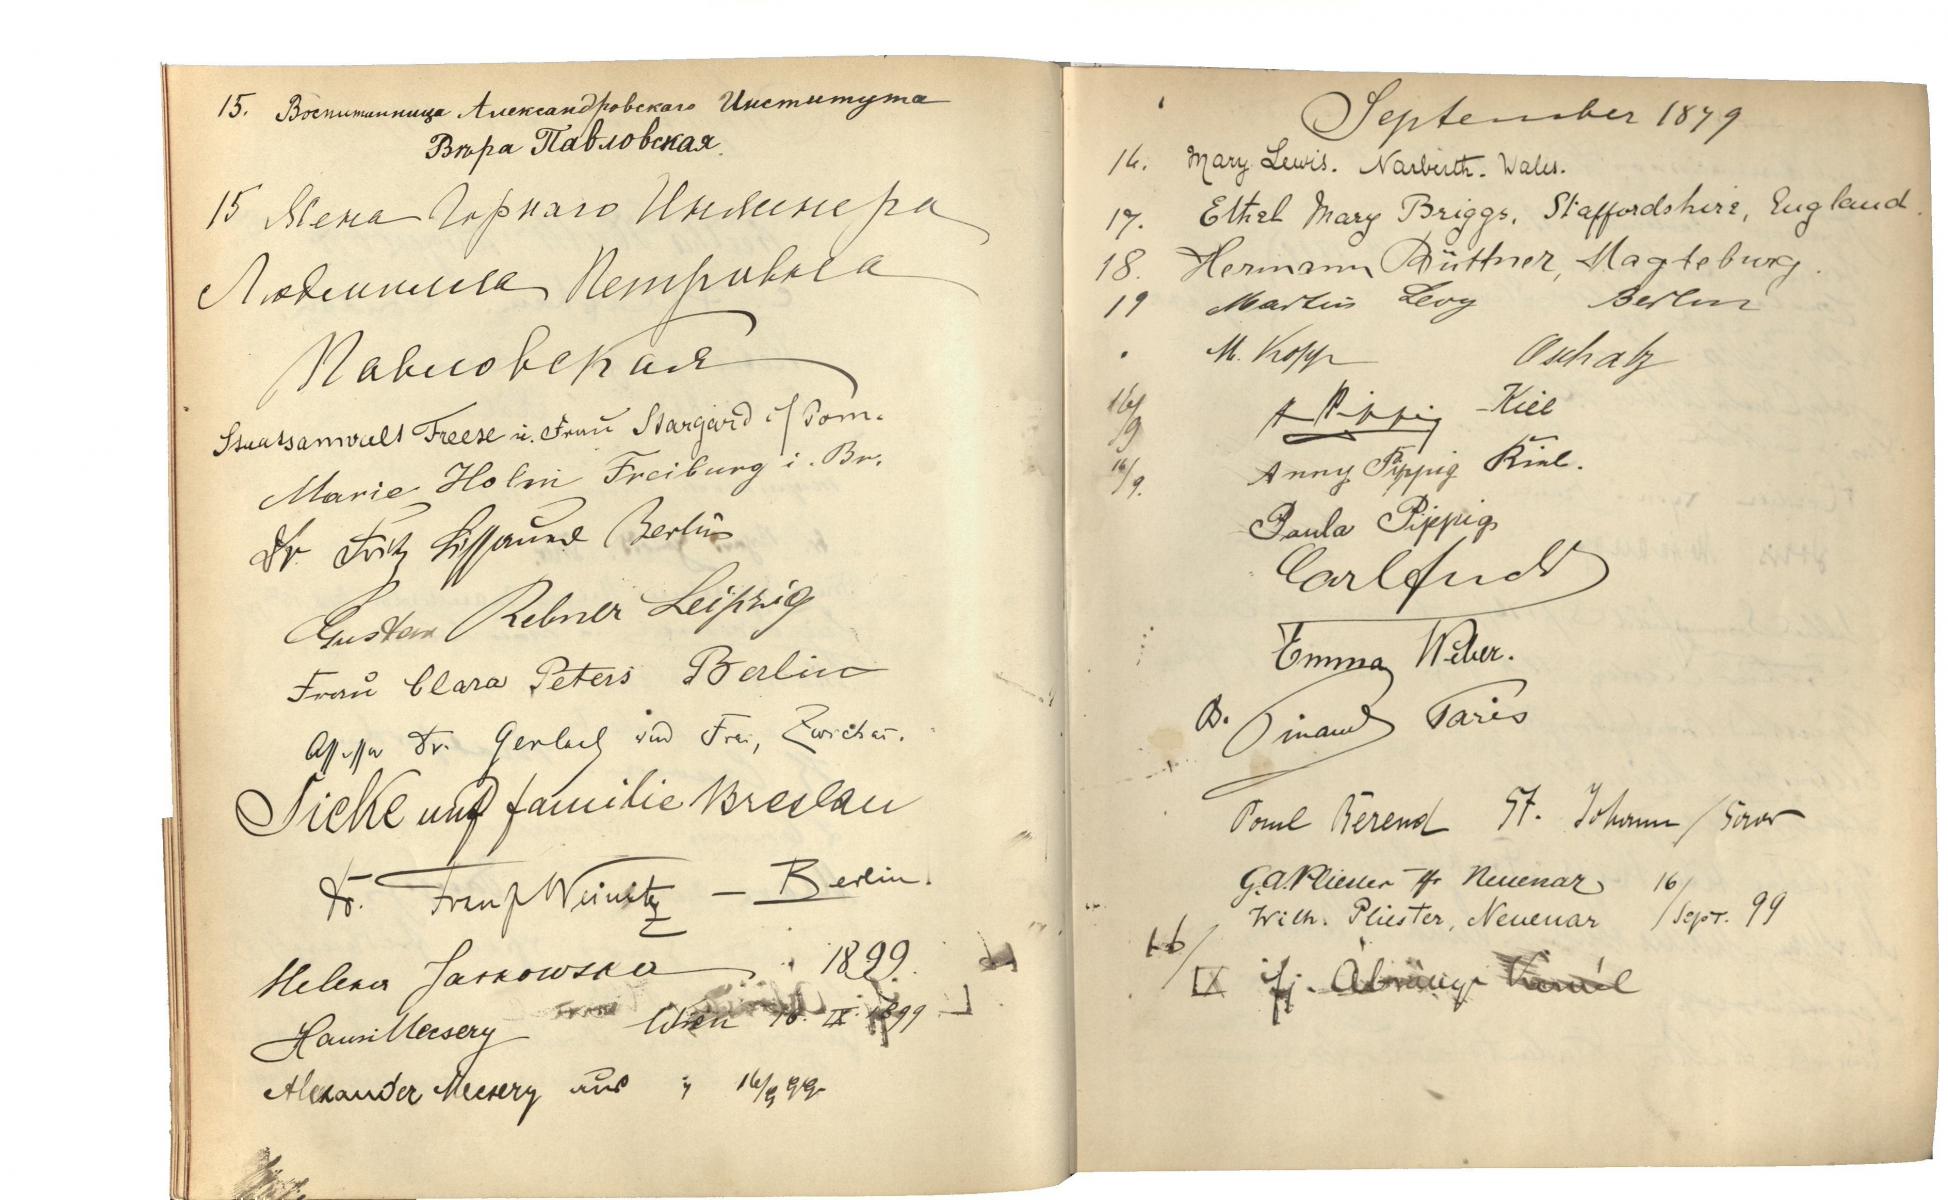 15. Воспитанница Александровскаго Института
Вѣра Павловская.
15 Жена Горнаго Инженера
Людмила Петровна
Павловская
Staatsanwalt Freese u. Frau Stargard i/Pom.
Marie Holm Freiburg i. Br.
Dr. Fritz Berlin
Gustav Rebner Leipzig
Frau Clara Peters Berlin
Assessor Dr. Gerlach und Frau, Zwickau.
Sicke und familie Breslau
Dr. Franz Weinitz – Berlin.
Helena Jankowska 1899.
Hansi Mecsery Wien 16. IX 1899
Alexander Mecsery aus " 16/9 99
September 1879
16. Mary Lewis. Narberth. Wales.
17. Ethel Mary Briggs, Staffordshire, England.
18. Hermann Büttner, Magdeburg.
19 Martin Levy Berlin
" M. Kopp Oschatz
16/9 A Pippig – Kiel
16/9. Anny Pippig Kiel.
Paula Pippig
Carl
Emma Weber.
B. Pinaud Paris
Paul Berend St. Johann / Saar
G.A. Pliester Neuenar 16/
Wilh. Pliester, Neuenar / Sept. 99
16/IX ifj. Ábrányi Kornél